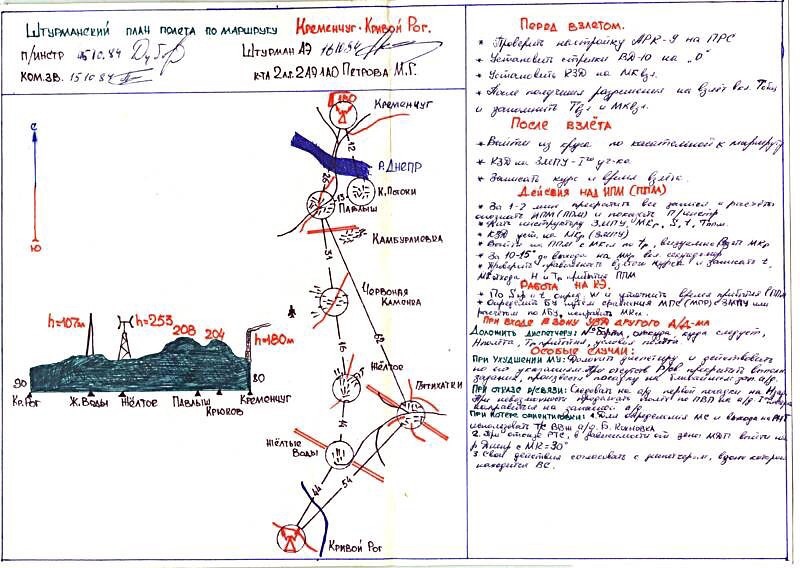 Штурманский план полета по маршруту Кременчуг-Кривой Рог.
п/инстр 05.10.84
Штурман АЭ 16.10.84
ком.зв. 15.10.84
к-та 2 л.г. 219 ЛАО Петрова М.Г.
С
Ю
Кременчуг
12
р. Днепр
26
13
К. Потоки
Павлыш
Камбурлиевка
31
Червоная Каменка
62
16
Жёлтое
Пятихатки
14
Жёлтые Воды
44
54
Кривой Рог
h=107м
h=253
208
204
h=180м
90
80
Кр.Рог
Ж.Воды
Жёлтое
Павлыш
Крюков
Кременчуг
Перед взлетом.
* Проверить настройку АРК-9 на ПРС
* Установить стрелки ВД-10 на „0"
* Установить КЗД на МКвзл.
* После получения разрешения на взлёт
и запомнить Твз и МКвзл.
После взлёта
* Выйти из круга по касательной к маршруту
* КЗД на ЗМПУ-1го уч-ка
* Записать курс и время взлёта.
Действия над ИПМ (ППМ)
* За 1-2 мин прекратить все записи и расчёты
опознать ИПМ (ППМ) и показать п/инстр
* Дать инструктору ЗМПУ, МКр, S, t, Тппм.
* КЗД уст. на МКр (ЗМПУ)
* Выйти на ППМ с МКсл по tр, визуально взять МКр
* За 10-15° до выхода на МКр вкл секундомер
* Проверить правильность взятого курса и записать t,
МК выхода, Н и Тр прибытия ППМ
Работа на КЭ.
* По Sпр и t опред. W и уточнить время прибытия ППМ
* Определить БУ путём сравнения МПС (МПР) с ЗМПУ или
расчётом по ЛБУ, исправить МКсл.
При входе в зону УВД другого А/Д-ма
Доложить диспетчеру: № борта, откуда, куда следует,
Нполёта, Тр прибытия, условия полёта
Особые случаи:
При ухудшении МУ: Доложить диспетчеру и действовать
по его указаниям. При отсутств.
задания, произвести посадку на ближайший зап. а/д.
При отказе р/связи: Следовать на а/д первой посадки на
При невозможности продолжать полёт по ПВП на а/д
направиться на запасной а/д.
При потере ориентировки: 1. Для определения МС и выхода на
использовать а/д. Б. Кохновка
2. При отказе РТС, в зависимости от зоны МВП выйти на
р. Днепр с МК=30°
3. Свои действия согласовать с диспетчером, в зоне которого
находится ВС.